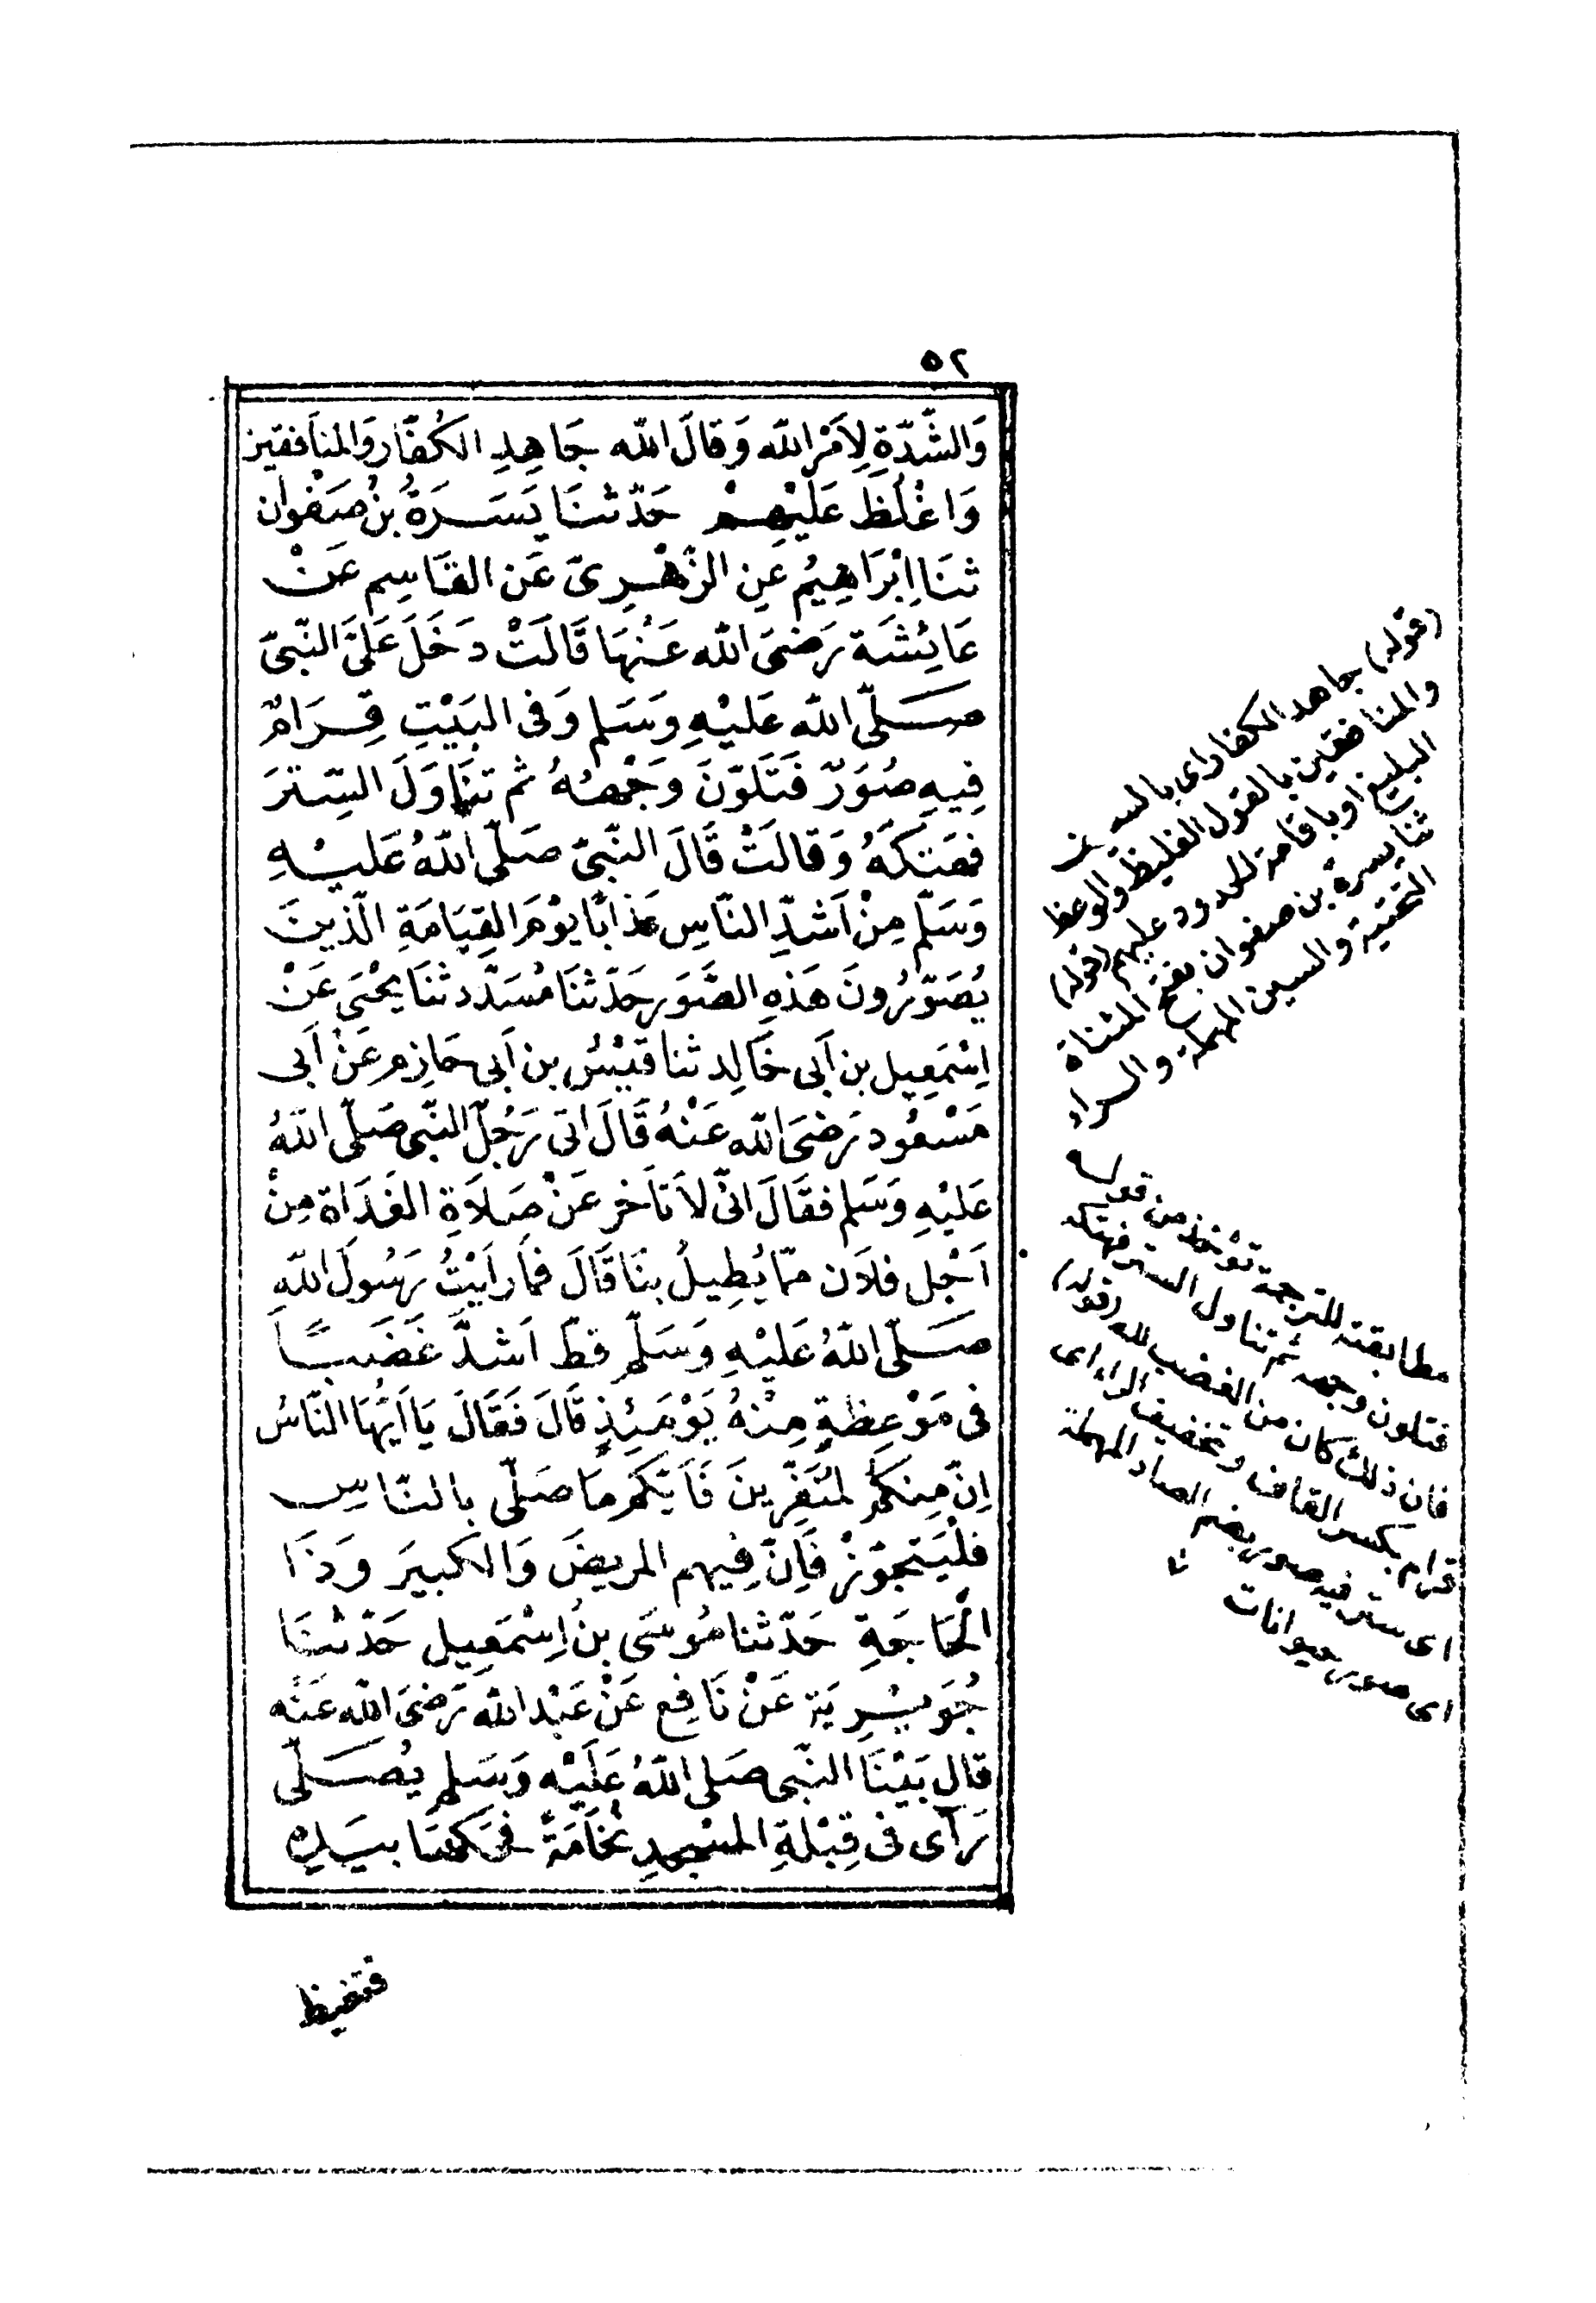 ٥٢
وَالشِّدَّةِ لِأَمْرِ اللّه وَقَالَ اللّه جَاهِدِ الكُفَّارَ وَالمُنَافقين
وَاغْلُظْ عَلَيْهِمْ حَدّثنَا يَسَرَةُ بْنُ صَفْوَان
ثنَا اِبْرَاهِيمُ عَنِ الزُّهْرِىّ عَن القَاسِمِ عَنْ
عَائِشَة رَضىَ اللّه عَنْهَا قَالَتْ دَخَلَ عَلَىَّ النَّبىّ
صَلّى اللّه عَليْهِ وَسَلم وَفى البَيْتِ قِرَامٌ
فِيهِ صُوَرٌ فَتَلَوّنَ وَجْهُهُ ثم تنَاوَلَ السِّتْرَ
فهَتَكَهُ وَقالَتْ قَالَ النَّبىّ صَلّى اللّهُ عَليْهِ
وَسَلّم مِنْ اَشَدِّ النّاسِ عَذابًا يوْمَ القِيَامَةِ الّذِينَ
يُصَوّرُونَ هَذِهِ الصُّوَر حَدّثنَا مُسَدّد ثنَا يَحْيَى عَنْ
اِسْمَعِيل بن اَبى خَالِد ثنا قَيْسُ بن اَبى حَازِم عَنْ اَبى
مَسْعُود رَضىَ اللّه عَنْهُ قَالَ اتى رَجُلٌ النّبى صَلّى اللّهُ
عَليْهِ وَسَلم فقَالَ انّى لاَ تَاَخر عَنْ صَلاَةِ الغَدَاة مِنْ
اَجْل فلاَن ممّا يُطِيلُ بنَا قَالَ فمَا رَاَيْتُ رَسُولَ اللّهِ
صَلّى اللّهُ عَليْهِ وَسَلّم قطّ اَشدَّ غَضَبًا
فى مَوْعِظةٍ مِنْهُ يَوْمَئِذٍ قَالَ فَقَالَ يَا اَيُّهَا النّاسُ
اِنّ مِنكمْ مُنَفِّرِينَ فَاَيّكمْ مَا صَلّى بالنّاسِ
فلْيَتجوّزْ فَاِنّ فِيهم المريضَ وَالكبيرَ وَذَا
الْحَاجَةِ حَدّثنا مُوسَى بنُ اِسْمَعِيل حَدّثنَا
جُوَيْرِيَة عَنْ نَافِع عَنْ عَبْد اللّه رَضىَ اللّه عَنْه
قال بَيْنَا النّبى صَلى اللّهُ عَلَيْه وَسَلم يُصَلّى
رَآى فى قِبْلةِ المسْجدِ نُخَامَةً فحَكهَا بيَدِهِ
فتغيظ
(قوله) جاهد الكفار اى بالسيف
والمنافقين بالقول الغليظ والوعظ
البليغ او باقامة الحدود عليهم (قوله)
ثنا يسرة بن صفوان بفتح المثناة
التحتية والسين المهملة والراء
مطابقته للترجمة تؤخذ من قوله
فتلون وجهه ثم تناول الستر فهتكه
فان ذلك كان من الغضب لله (قوله)
قرام بكسر القاف وتخفيف الراء اى
اى ستر فيه صور بضم الصاد المهملة
اى صور حيوانات